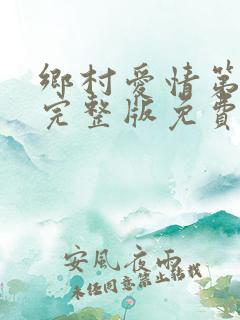 鄉村愛情第
完整版免費
安風夜雨
未经同意禁止转载